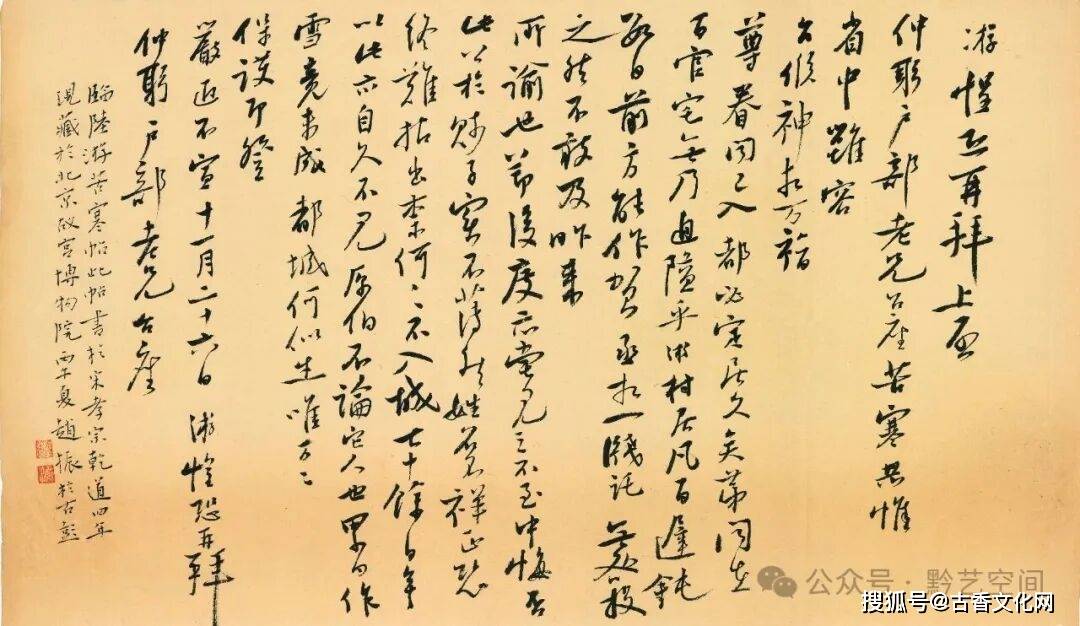 游惶恐再拜上啟
仲躬户部老兄台座苦寒恭惟
省中雖容
台候神相万福
尊眷闻已入都必定居久矣第闻在
百官宅無乃迫隘乎游村居凡百遲鈍
數日前方能作贺丞相一牋託無咎投
之然不敢及昨来
所諭也節後度亦嘗见之不至中悔否
此公於賤子實不薄然姓名不祥正恐
终難拈出柰何〻不入城七十餘日
以此亦自久不见原伯不論它人也累日作
雪竟未成都城何似生唯万〻
保護即登
嚴近不宣十一月二十六日 游惶恐再拜
仲躬户部老兄台座
臨陸游苦寒帖此帖書於宋孝宗乾道四年
現藏於北京故宫博物院丙午夏趙振於古彭
公众号·黔艺空间
搜狐号@古香文化网